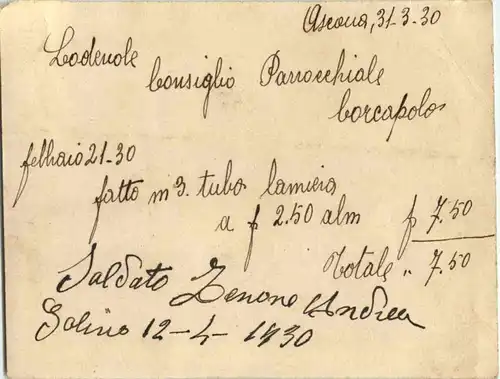 Ascona, 31-3-30
Lodevole
Consiglio Parrocchiale
febbraio 21-30
fatto m 3. tubo lamiera
a f 2.50 al m f 7.50
Totale " 7.50
Saldato Zenone Andrea
Golino 12-4-1930